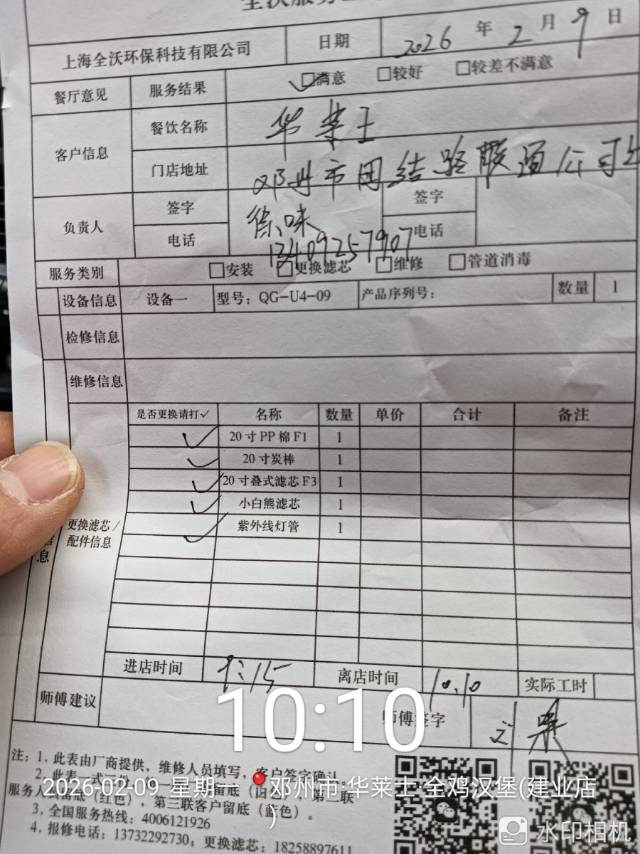 上海全沃环保科技有限公司 日期 2026 年 2 月 9 日
餐厅意见 服务结果 ☑满意 □较好 □较差不满意
客户信息 餐饮名称 华莱士
门店地址 邓州市团结路联通公司
负责人 签字 徐咪 签字
电话 13409257907 电话
服务类别 □安装 □更换滤芯 □维修 □管道消毒
设备信息 设备一 型号：QG-U4-09 产品序列号： 数量 1
检修信息
维修信息
更换滤芯/配件信息
是否更换请打✓ 名称 数量 单价 合计 备注
✓ 20寸PP棉F1 1
✓ 20寸炭棒 1
✓ 20寸叠式滤芯F3 1
✓ 小白熊滤芯 1
✓ 紫外线灯管 1
进店时间 9:15 离店时间 10.10 实际工时
师傅建议 师傅签字
10:10
注：1. 此表由厂商提供，维修人员填写，客户签字确认
2026-02-09 星期一 邓州市·华莱士·全鸡汉堡(建业店)
服务人员留底（红色），第三联客户留底（蓝色）。
3. 全国服务热线：4006121926
4. 报修电话：13732292730；更换滤芯：18258897611
水印相机